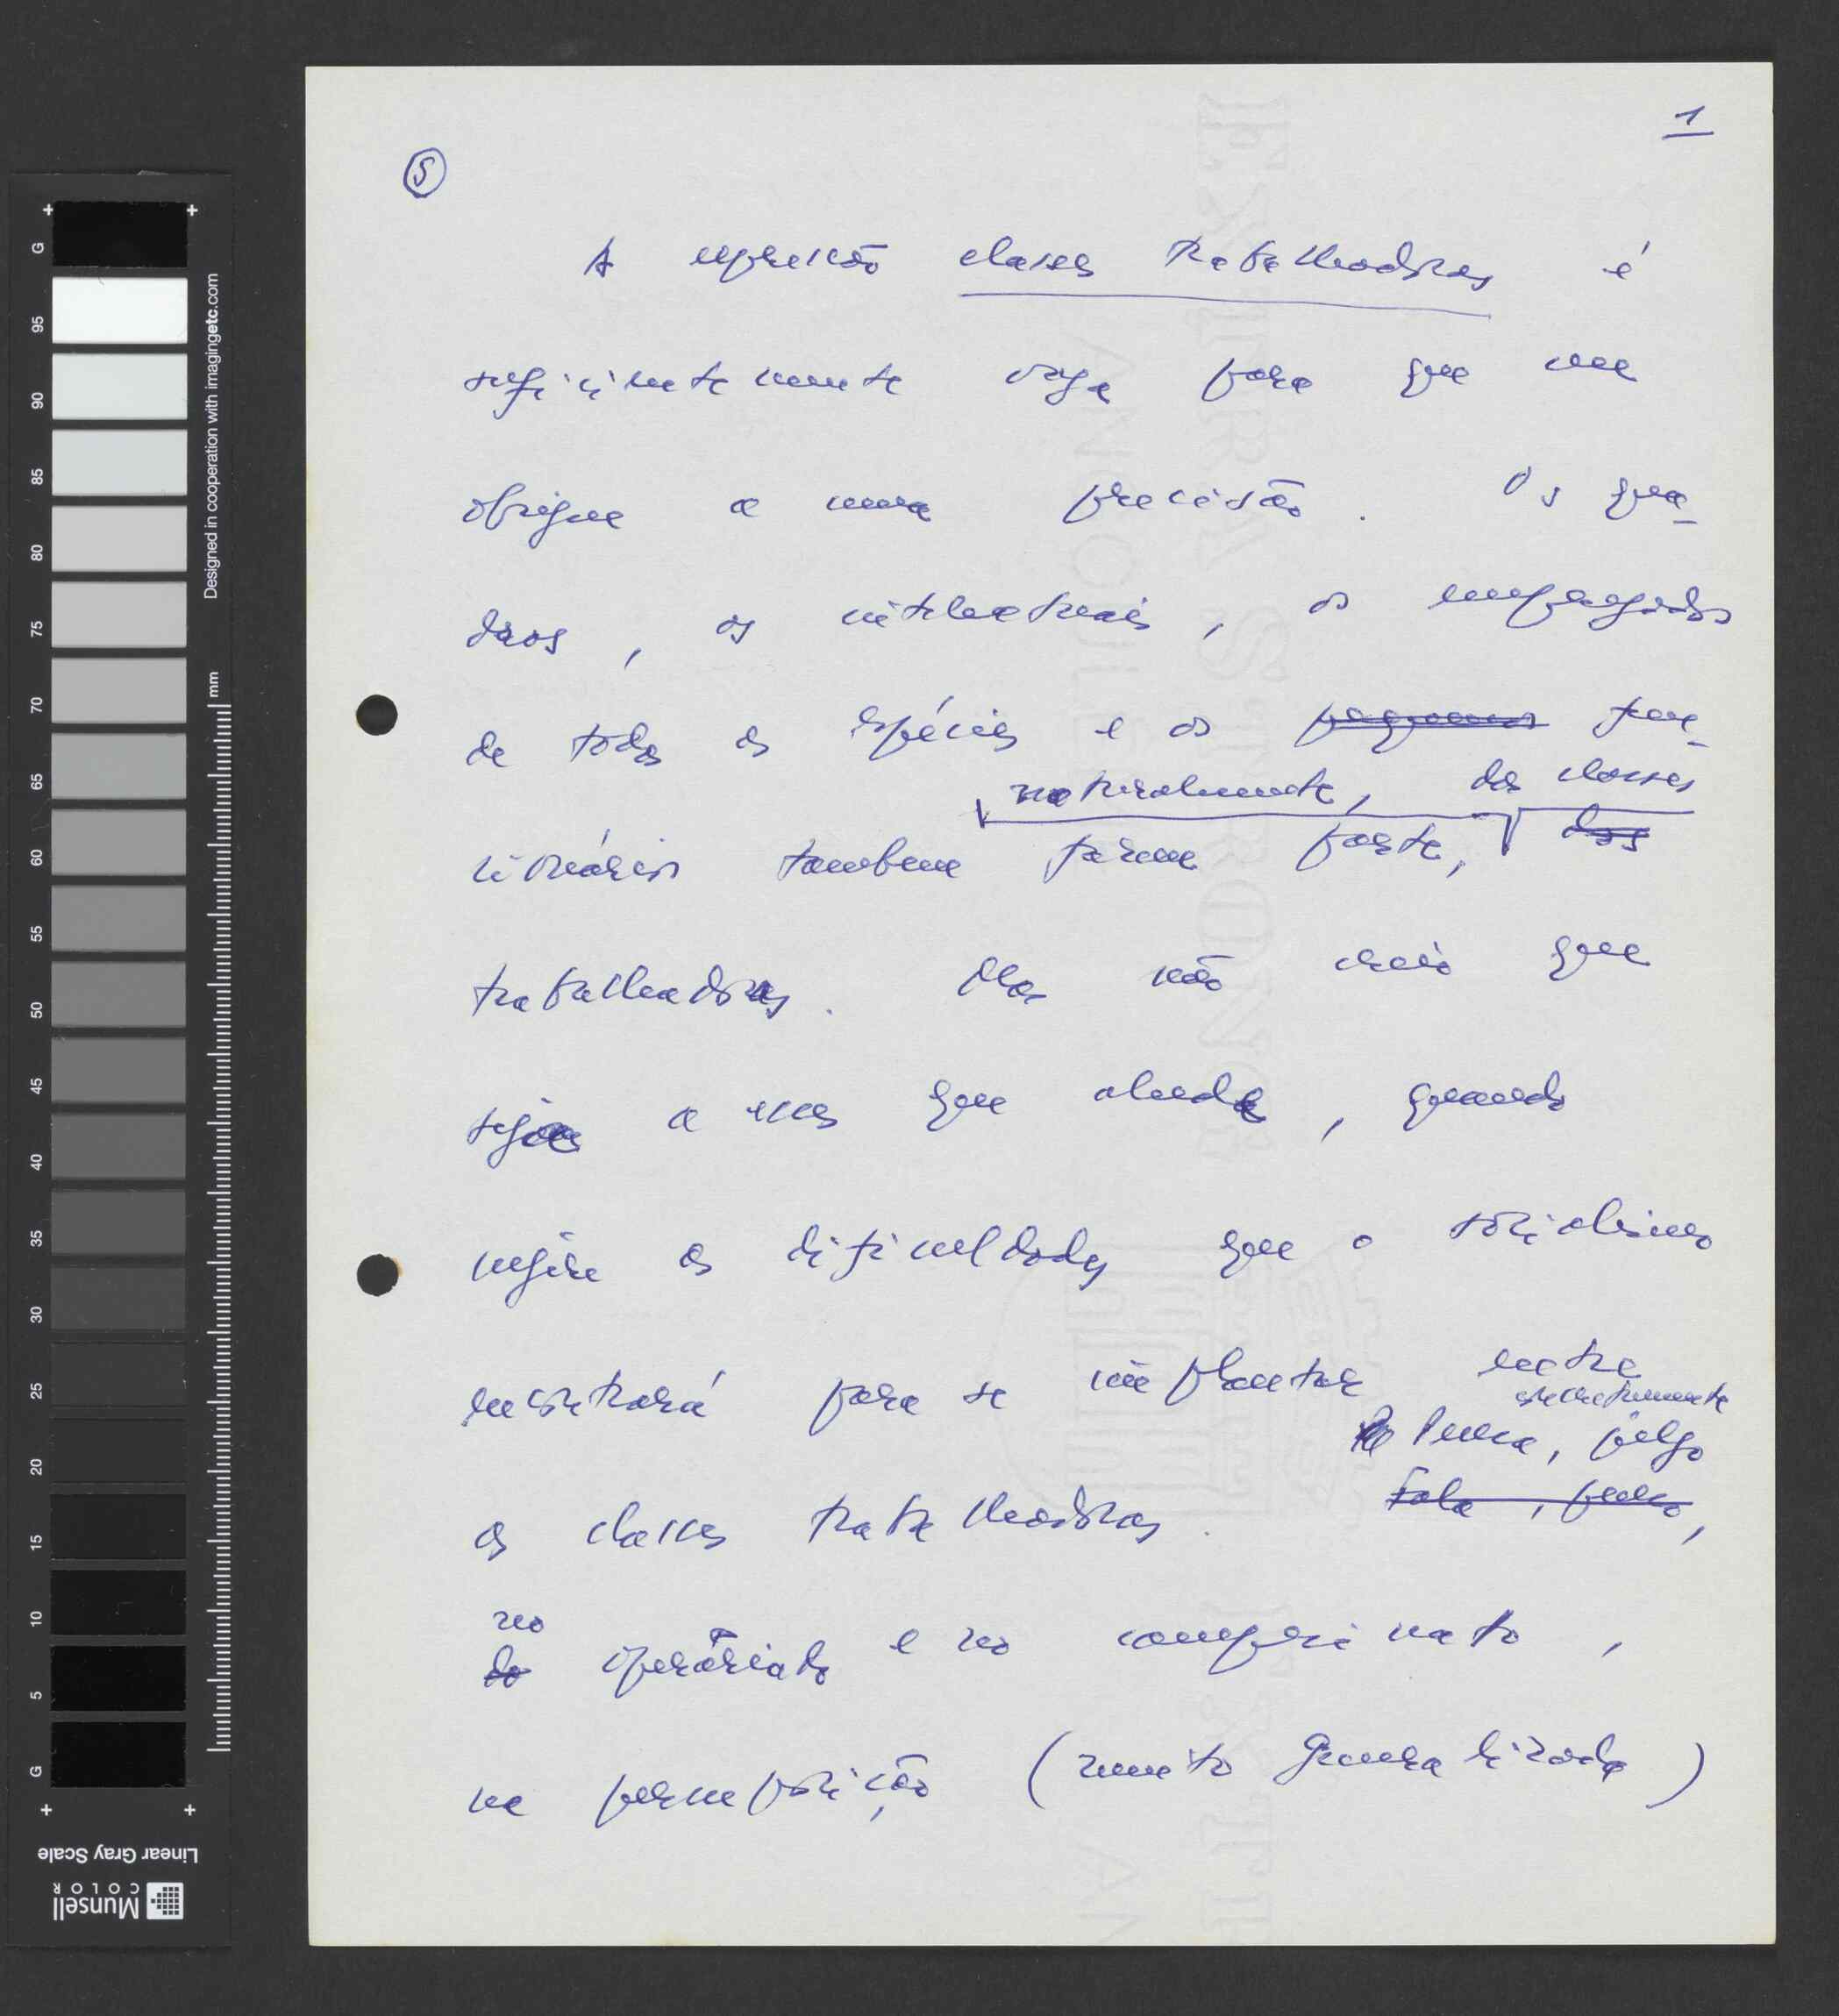 1
5
A expressão classes trabalhadoras é
suficientemente vaga para que me
obrigue a uma precisão. Os qua-
dros, os intelectuais, os empregados
de todas as espécies e os pequenos fun-
naturalmente, das classes
cionários tambem fazem parte, dos
trabalhadoras. Mas não creio que
seja a essas que alude, quando
refere as dificuldades que o socialismo
encontrará para se implantar entre
estreitamente
Pensa, julgo
as classes trabalhadoras. Fala, penso,
no
do operáriado e no campesinato,
na pressuposição (muito generalizada)
G 95 90 85 80 75 70 65 60 55 50 45 40 35 30 25 20 15 10 5 G
mm
mm
Designed in cooperation with imagingetc.com
Linear Gray Scale
Munsell
COLOR